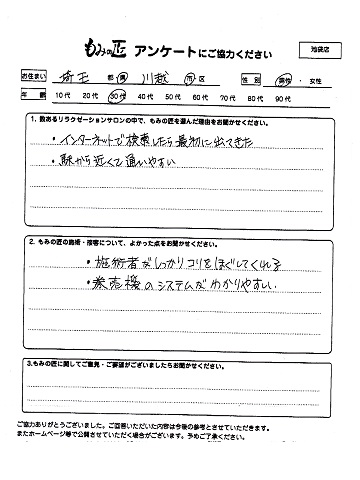 もみの匠 アンケートにご協力ください
池袋店
お住まい 埼玉 都・県 川越 市・区 性別 男性・女性
年齢 10代 20代 30代 40代 50代 60代 70代 80代 90代
1. 数あるリラクゼーションサロンの中で、もみの匠を選んだ理由をお聞かせください。
・インターネットで検索したら最初に出てきた
・駅から近くて通いやすい
2. もみの匠の施術・接客について、よかった点をお聞かせください。
・施術者がしっかりコリをほぐしてくれる
・券売機のシステムがわかりやすい
3.もみの匠に関してご意見・ご要望がございましたらお聞かせください。
ご協力ありがとうございました。ご回答いただいた内容は今後の参考とさせていただきます。
またホームページ等で公開させていただく場合がございます。予めご了承ください。